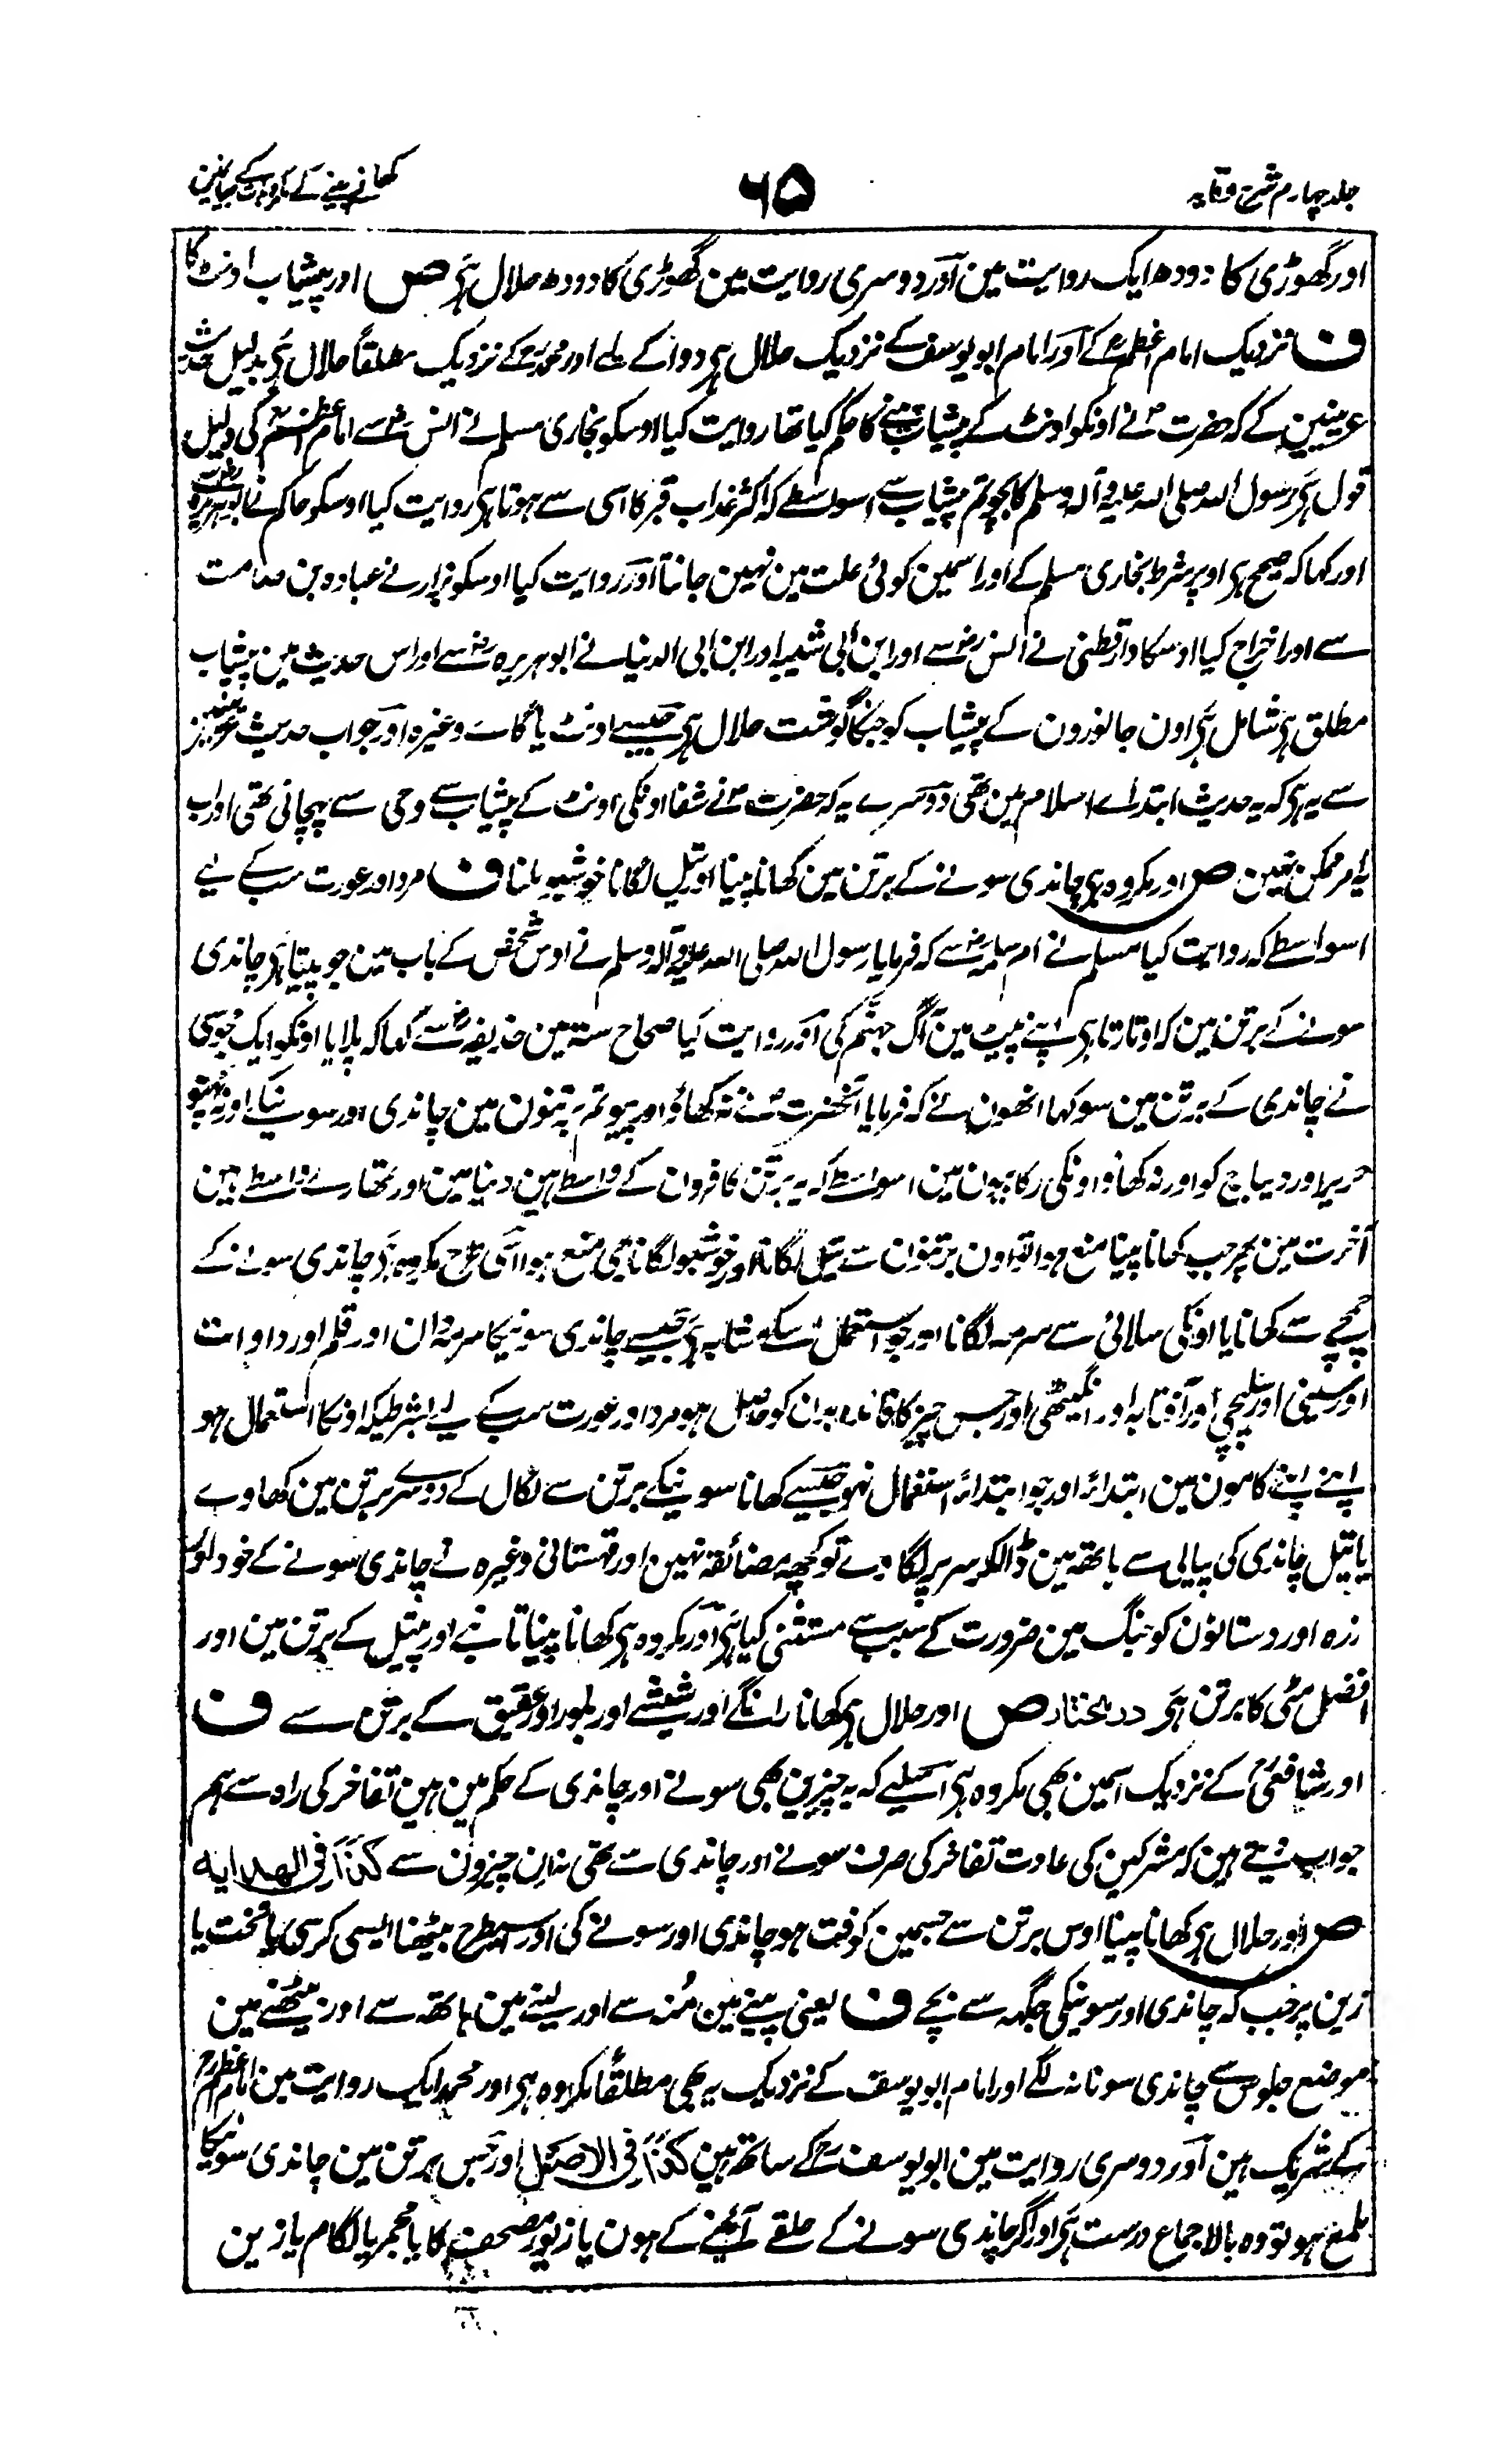 جلد چہارم شرح وقایہ
٦٥
کھانے پینے کے مکروہات کے بیان مین
اور گھوڑی کا دودھ ایک روایت مین اور دوسری روایت مین گھوڑی کا دودھ حلال ہی ص اور پیشاب اونٹ کا
ف نزدیک امام اعظمؒ کے اور امام ابو یوسف کے نزدیک حلال ہی دوا کے لیے اور محمدؒ کے نزدیک مطلقاً حلال ہی بدلیل حدیث
عرینین کے کہ حضرتؐ نے اونکو اونٹ کے پیشاب پینے کا حکم کیا تھا روایت کیا اوسکو بخاری مسلم نے انسؓ سے امام اعظمؒ کی دلیل
قول ہی رسول اللہ صلی اللہ علیہ وآلہ وسلم کا بچو تم پیشاب سے اسواسطے کہ اکثر عذاب قبر کا اسی سے ہوتا ہی روایت کیا اوسکو حاکم نے ابو ہریرہ رض سے
اور کہا کہ صحیح ہی اوپر شرط بخاری مسلم کے اور اسمین کوئی علت مین نہین جانتا اور روایت کیا اوسکو بزار نے عبادہ بن صامت
سے اور اخراج کیا اوسکا دارقطنی نے انس رض سے اور ابن ابی شیبہ اور ابن ابی الدنیا نے ابو ہریرہ رض سے اور اس حدیث مین پیشاب
مطلق ہی شامل ہی اون جانورون کے پیشاب کو جنکا گوشت حلال ہی جیسے اونٹ یا گاے وغیرہ اور جواب حدیث عرینین
سے یہ ہی کہ یہ حدیث ابتداے اسلام مین تھی دوسرے یہ کہ حضرتؐ نے شفا اونکی اونٹ کے پیشاب سے وحی سے پہچانی تھی اور اب
یہ امر ممکن نہین ص اور مکروہ ہی چاندی سونے کے برتن مین کھانا پینا اور تیل لگانا خوشبو ملنا ف مرد اور عورت سب کے لیے
اسواسطے کہ روایت کیا مسلم نے ام سلمہ رض سے کہ فرمایا رسول اللہ صلی اللہ علیہ وآلہ وسلم نے اوس شخص کے باب مین جو پیتا ہی چاندی
سونے کے برتن مین کہ اوتارتا ہی اپنے پیٹ مین آگ جہنم کی اور روایت کیا صحاح ستہ مین حذیفہ رض سے کہا کہ پلایا اونکو ایک مجوسی
نے چاندی کے برتن مین سو کہا انھون نے کہ فرمایا آنحضرتؐ نے نہ کھاؤ اور پیو تم برتنون مین چاندی اور سونیکے اور نہ پہنو
حریر اور دیباج کو اور نہ کھاؤ اونکی رکابیون مین اسواسطے کہ یہ برتن کافرون کے واسطے ہین دنیا مین اور تمھارے واسطے ہین
آخرت مین پھر جب کھانا پینا منع ہوا تو اون برتنون سے تیل لگانا اور خوشبو لگانا بھی منع ہوا اسی طرح مکروہ ہی چاندی سونے کے
چمچے سے کھانا یا اونکی سلائی سے سرمہ لگانا اور جو استعمال اسکے مشابہ ہی جیسے چاندی سونیکا سرمہ دان اور قلم اور داوات
اور سینی اور سلپچی اور آفتابہ اور انگیٹھی اور جس چیز کا فائدہ بدن کو حاصل ہو مرد اور عورت سب کے لیے بشرطیکہ اونکا استعمال ہو
اپنے اپنے کامون مین ابتداءً اور جو ابتداءً استعمال نہو جیسے کھانا سونیکے برتن سے نکال کے دوسرے برتن مین کھاوے
یا تیل چاندی کی پیالی سے ہاتھ مین ڈالکر سر پر لگاوے تو کچھ مضائقہ نہین اور قہستانی وغیرہ نے چاندی سونے کے خود اور
زرہ اور دستانون کو جنگ مین ضرورت کے سبب سے مستثنیٰ کیا ہی اور مکروہ ہی کھانا پینا تانبے اور پیتل کے برتن مین اور
افضل مٹی کا برتن ہی در مختار ص اور حلال ہی کھانا رانگے اور شیشے اور بلور اور عقیق کے برتن سے ف
اور شافعیؒ کے نزدیک اسمین بھی مکروہ ہی اسلیے کہ یہ چیزین بھی سونے اور چاندی کے حکم مین ہین تفاخر کی راہ سے ہم
جواب دیتے ہین کہ مشرکین کی عادت تفاخر کی صرف سونے اور چاندی سے تھی نہ ان چیزون سے کذا فی الہدایہ
ص اور حلال ہی کھانا پینا اوس برتن سے جسمین کوفت ہو چاندی اور سونے کی اور اسیطرح بیٹھنا ایسی کرسی یا تخت یا
زین پر جب کہ چاندی اور سونیکی جگہہ سے بچے ف یعنی پینے مین مُنہ سے اور لینے مین ہاتھ سے اور بیٹھنے مین
موضع جلوس سے چاندی سونا نہ لگے اور امام ابو یوسف کے نزدیک یہ بھی مطلقاً مکروہ ہی اور محمد ایک روایت مین امام اعظمؒ
کے شریک ہین اور دوسری روایت مین ابو یوسفؒ کے ساتھ ہین کذا فی الاصل اور جس برتن مین چاندی سونیکا
ملمع ہو تو وہ بالاجماع درست ہی اور اگر چاندی سونے کے حلقے آئینے کے ہون یا زیور مصحف کا یا مجمر یا لگام یا زین